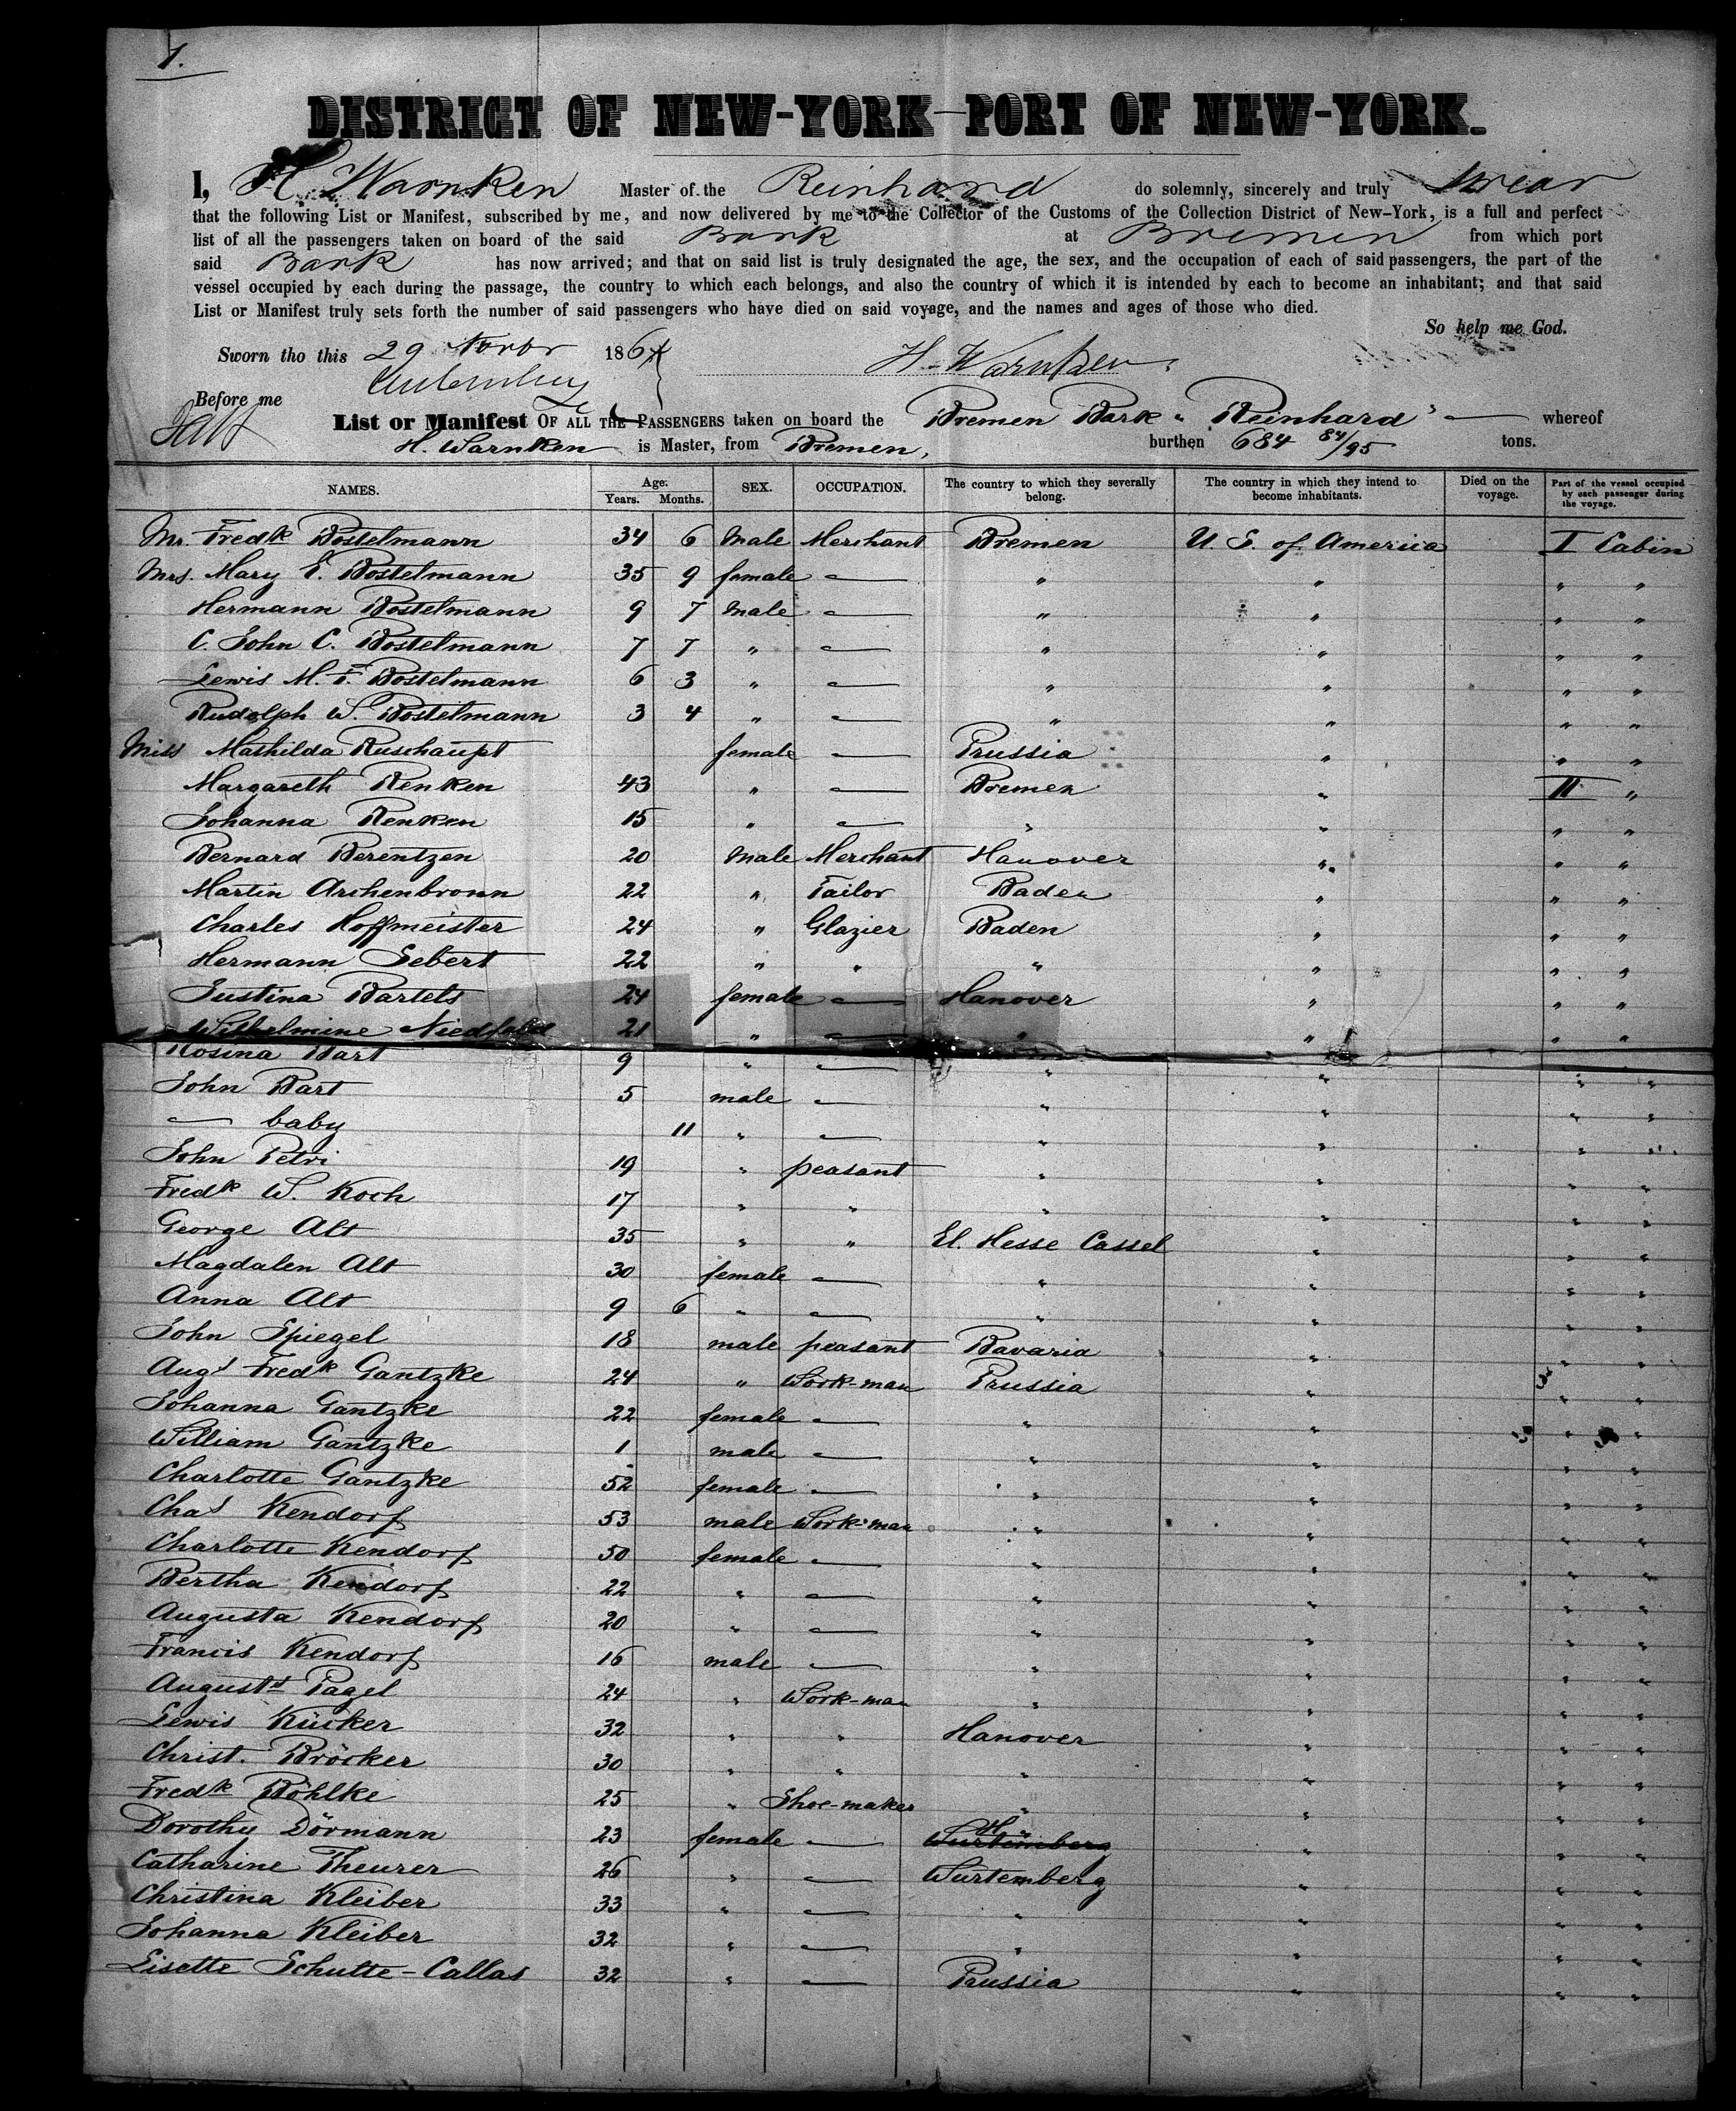 1.
DISTRICT OF NEW-YORK-PORT OF NEW-YORK.
I, H. Warnken Master of the Reinhard do solemnly, sincerely and truly swear
that the following List or Manifest, subscribed by me, and now delivered by me to the Collector of the Customs of the Collection District of New-York, is a full and perfect
list of all the passengers taken on board of the said Bark at Bremen from which port
said Bark has now arrived; and that on said list is truly designated the age, the sex, and the occupation of each of said passengers, the part of the
vessel occupied by each during the passage, the country to which each belongs, and also the country of which it is intended by each to become an inhabitant; and that said
List or Manifest truly sets forth the number of said passengers who have died on said voyage, and the names and ages of those who died.
So help me God.
Sworn tho this 29 Novbr 186 H. Warnken
Before me
List or Manifest OF ALL THE PASSENGERS taken on board the Bremen Bark "Reinhard" — whereof
H. Warnken is Master, from Bremen, burthen 684 84/95 tons.
NAMES. Age: Years. Months. SEX. OCCUPATION. The country to which they severally belong. The country in which they intend to become inhabitants. Died on the voyage. Part of the vessel occupied by each passenger during the voyage.
Mr. Fredk Bostelmann 34 6 Male Merchant Bremen U. S. of America I Cabin
Mrs. Mary E. Bostelmann 35 9 female — " " " "
Hermann Bostelmann 9 7 Male — " " " "
C. John C. Bostelmann 7 7 " — " " " "
Lewis M. F. Bostelmann 6 3 " — " " " "
Rudolph W. Bostelmann 3 4 " — " " " "
Miss Mathilda Ruschaupt female — Prussia " " "
Margareth Renken 43 " — Bremen " II "
Johanna Renken 15 " — " " " "
Bernard Berentzen 20 Male Merchant Hanover " " "
Martin Archenbronn 22 " Tailor Baden " " "
Charles Hoffmeister 24 " Glazier Baden " " "
Hermann Sebert 22 " " " " " "
Justina Bartels 24 female — Hanover " " "
Wilhelmine Niedfeld 21 " — " " " "
Rosina Bart 9 " — " " " "
John Bart 5 male — " " " "
— baby 11 " — " " " "
John Petri 19 " peasant " " " "
Fredk W. Koch 17 " " " " " "
George Alt 35 " " El. Hesse Cassel " " "
Magdalen Alt 30 female — " " " "
Anna Alt 9 6 " — " " " "
John Spiegel 18 male peasant Bavaria " " "
Augt Fredk Gantzke 24 " Work-man Prussia " " "
Johanna Gantzke 22 female — " " " "
William Gantzke 1 male — " " " "
Charlotte Gantzke 52 female — " " " "
Chas Kendorf 53 male Work-man " " " "
Charlotte Kendorf 50 female — " " " "
Bertha Kendorf 22 " — " " " "
Augusta Kendorf 20 " — " " " "
Francis Kendorf 16 male — " " " "
August Pagel 24 " Work-man " " " "
Lewis Kücker 32 " " Hanover " " "
Christ. Bröcker 30 " " " " " "
Fredk Böhlke 25 " Shoe-maker " " " "
Dorothy Dörmann 23 female — H. Wurtemberg " " "
Catharine Theurer 26 " — Wurtemberg " " "
Christina Kleiber 33 " — " " " "
Johanna Kleiber 32 " — " " " "
Lisette Schutte-Callas 32 " — Prussia " " "